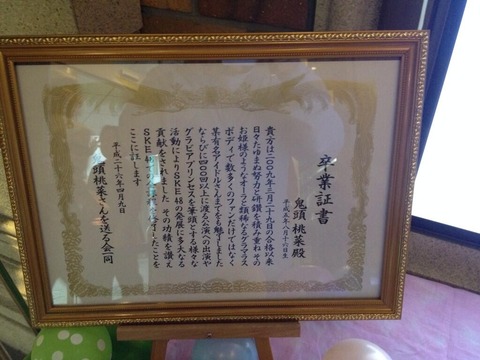 卒業証書
鬼頭 桃菜 殿
平成五年八月十六日生
貴方は二〇〇九年三月二十九日の合格以来
日々たゆまぬ努力と研鑽を積み重ねその
お姫様のようなオーラと類稀なるグラマラス
ボディで数多くのファンだけではなく
某有名アイドルさんまでをも魅了しました
ならびに四〇〇回以上に渡る公演への出演や
グラビアプリンセスを筆頭とする様々な
活動によりSKE48の発展に多大なる
貢献をされました その功績を讃え
SKE4 したことを
ここに証します
平成二十六年四月九日
頭桃菜さんを送る会一同